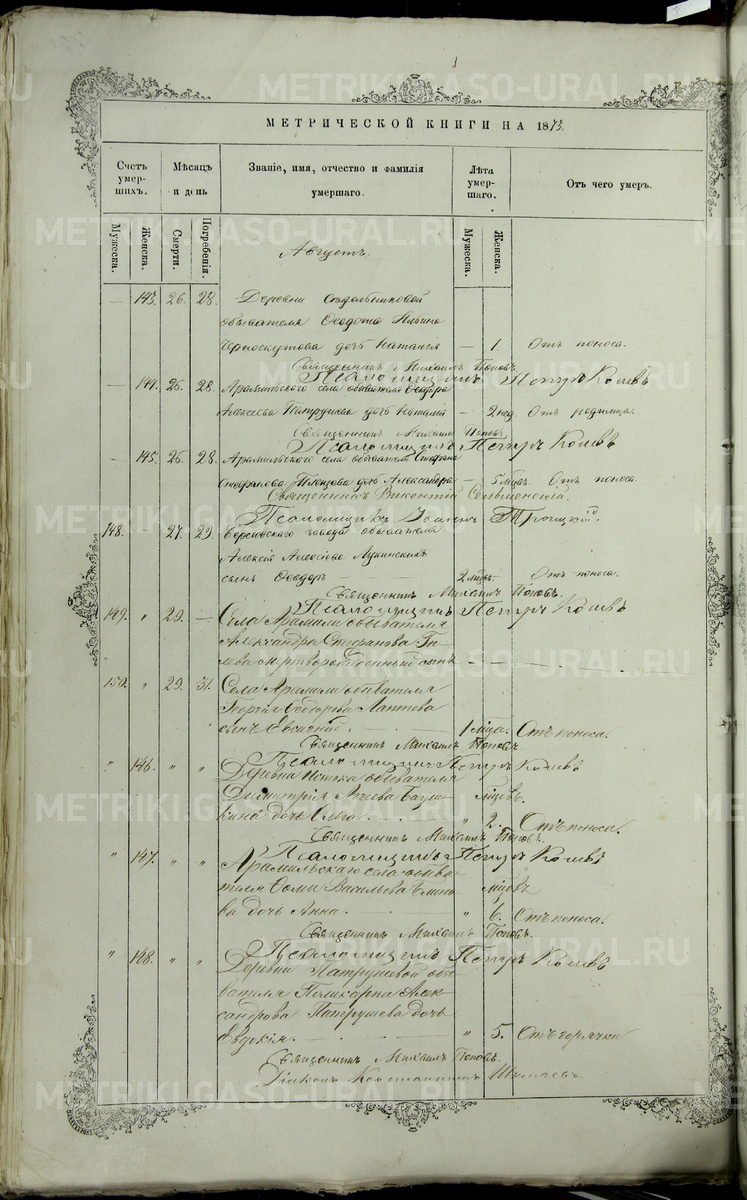 1
МЕТРИЧЕСКОЙ КНИГИ НА 1873.
Счетъ умер- шихъ.
Мѣсяцъ и день
Званіе, имя, отчество и фамилія умершаго.
Лѣта умер- шаго.
Отъ чего умеръ.
Мужеска. Женска. Смерти. Погребенія. Мужеска. Женска.
Августъ
— 143. 26. 28. Деревни Сѣдельниковой
обывателя Ѳеодота Ильина
Черноскутова дочь Наталія — 1. Отъ поноса.
Священникъ Михаилъ Поповъ
Псаломщикъ Петръ
— 144. 25. 28. Арамильскаго села обывателя
Алексѣева Патрушева дочь Наталія — 2 нед. Отъ родимца.
Священникъ Михаилъ Поповъ
Псаломщикъ Петръ
— 145. 26. 28. Арамильскаго села обывателя Стефана
Стефанова дочь Александра — 5 мѣс. Отъ поноса.
Священникъ Викентій
Псаломщикъ Іоаннъ Троицкій
148. — 27. 29. завода обывателя
Алексія Алексѣева
сынъ Ѳеодоръ — 2 мѣс. — Отъ поноса.
Священникъ Михаилъ Поповъ.
Псаломщикъ Петръ
149. " 29. — Села Арамили обывателя
Александра Стефанова
мертворожденный сынъ — — —
150. " 29. 31. Села Арамили обывателя
Георгія Ѳеодорова Лаптева
сынъ 1 мѣсца. Отъ поноса.
Священникъ Михаилъ Поповъ
Псаломщикъ Петръ
" 146. " " Деревни обывателя
Димитрія
дочь " 2. Отъ поноса.
Священникъ Михаилъ Поповъ.
Псаломщикъ Петръ
" 147. " " Арамильскаго села обыва-
теля Ѳомы Васильева
ва дочь Анна. " 6. Отъ поноса.
Священникъ Михаилъ Поповъ.
Псаломщикъ Петръ
" 148. " " Деревни Патрушевой обы-
вателя Поликарпа Алек-
сандрова Патрушева дочь
Евдокія. " 5. Отъ горячки
Священникъ Михаилъ Поповъ.
Діаконъ Константинъ
METRIKI.GASO-URAL.RU